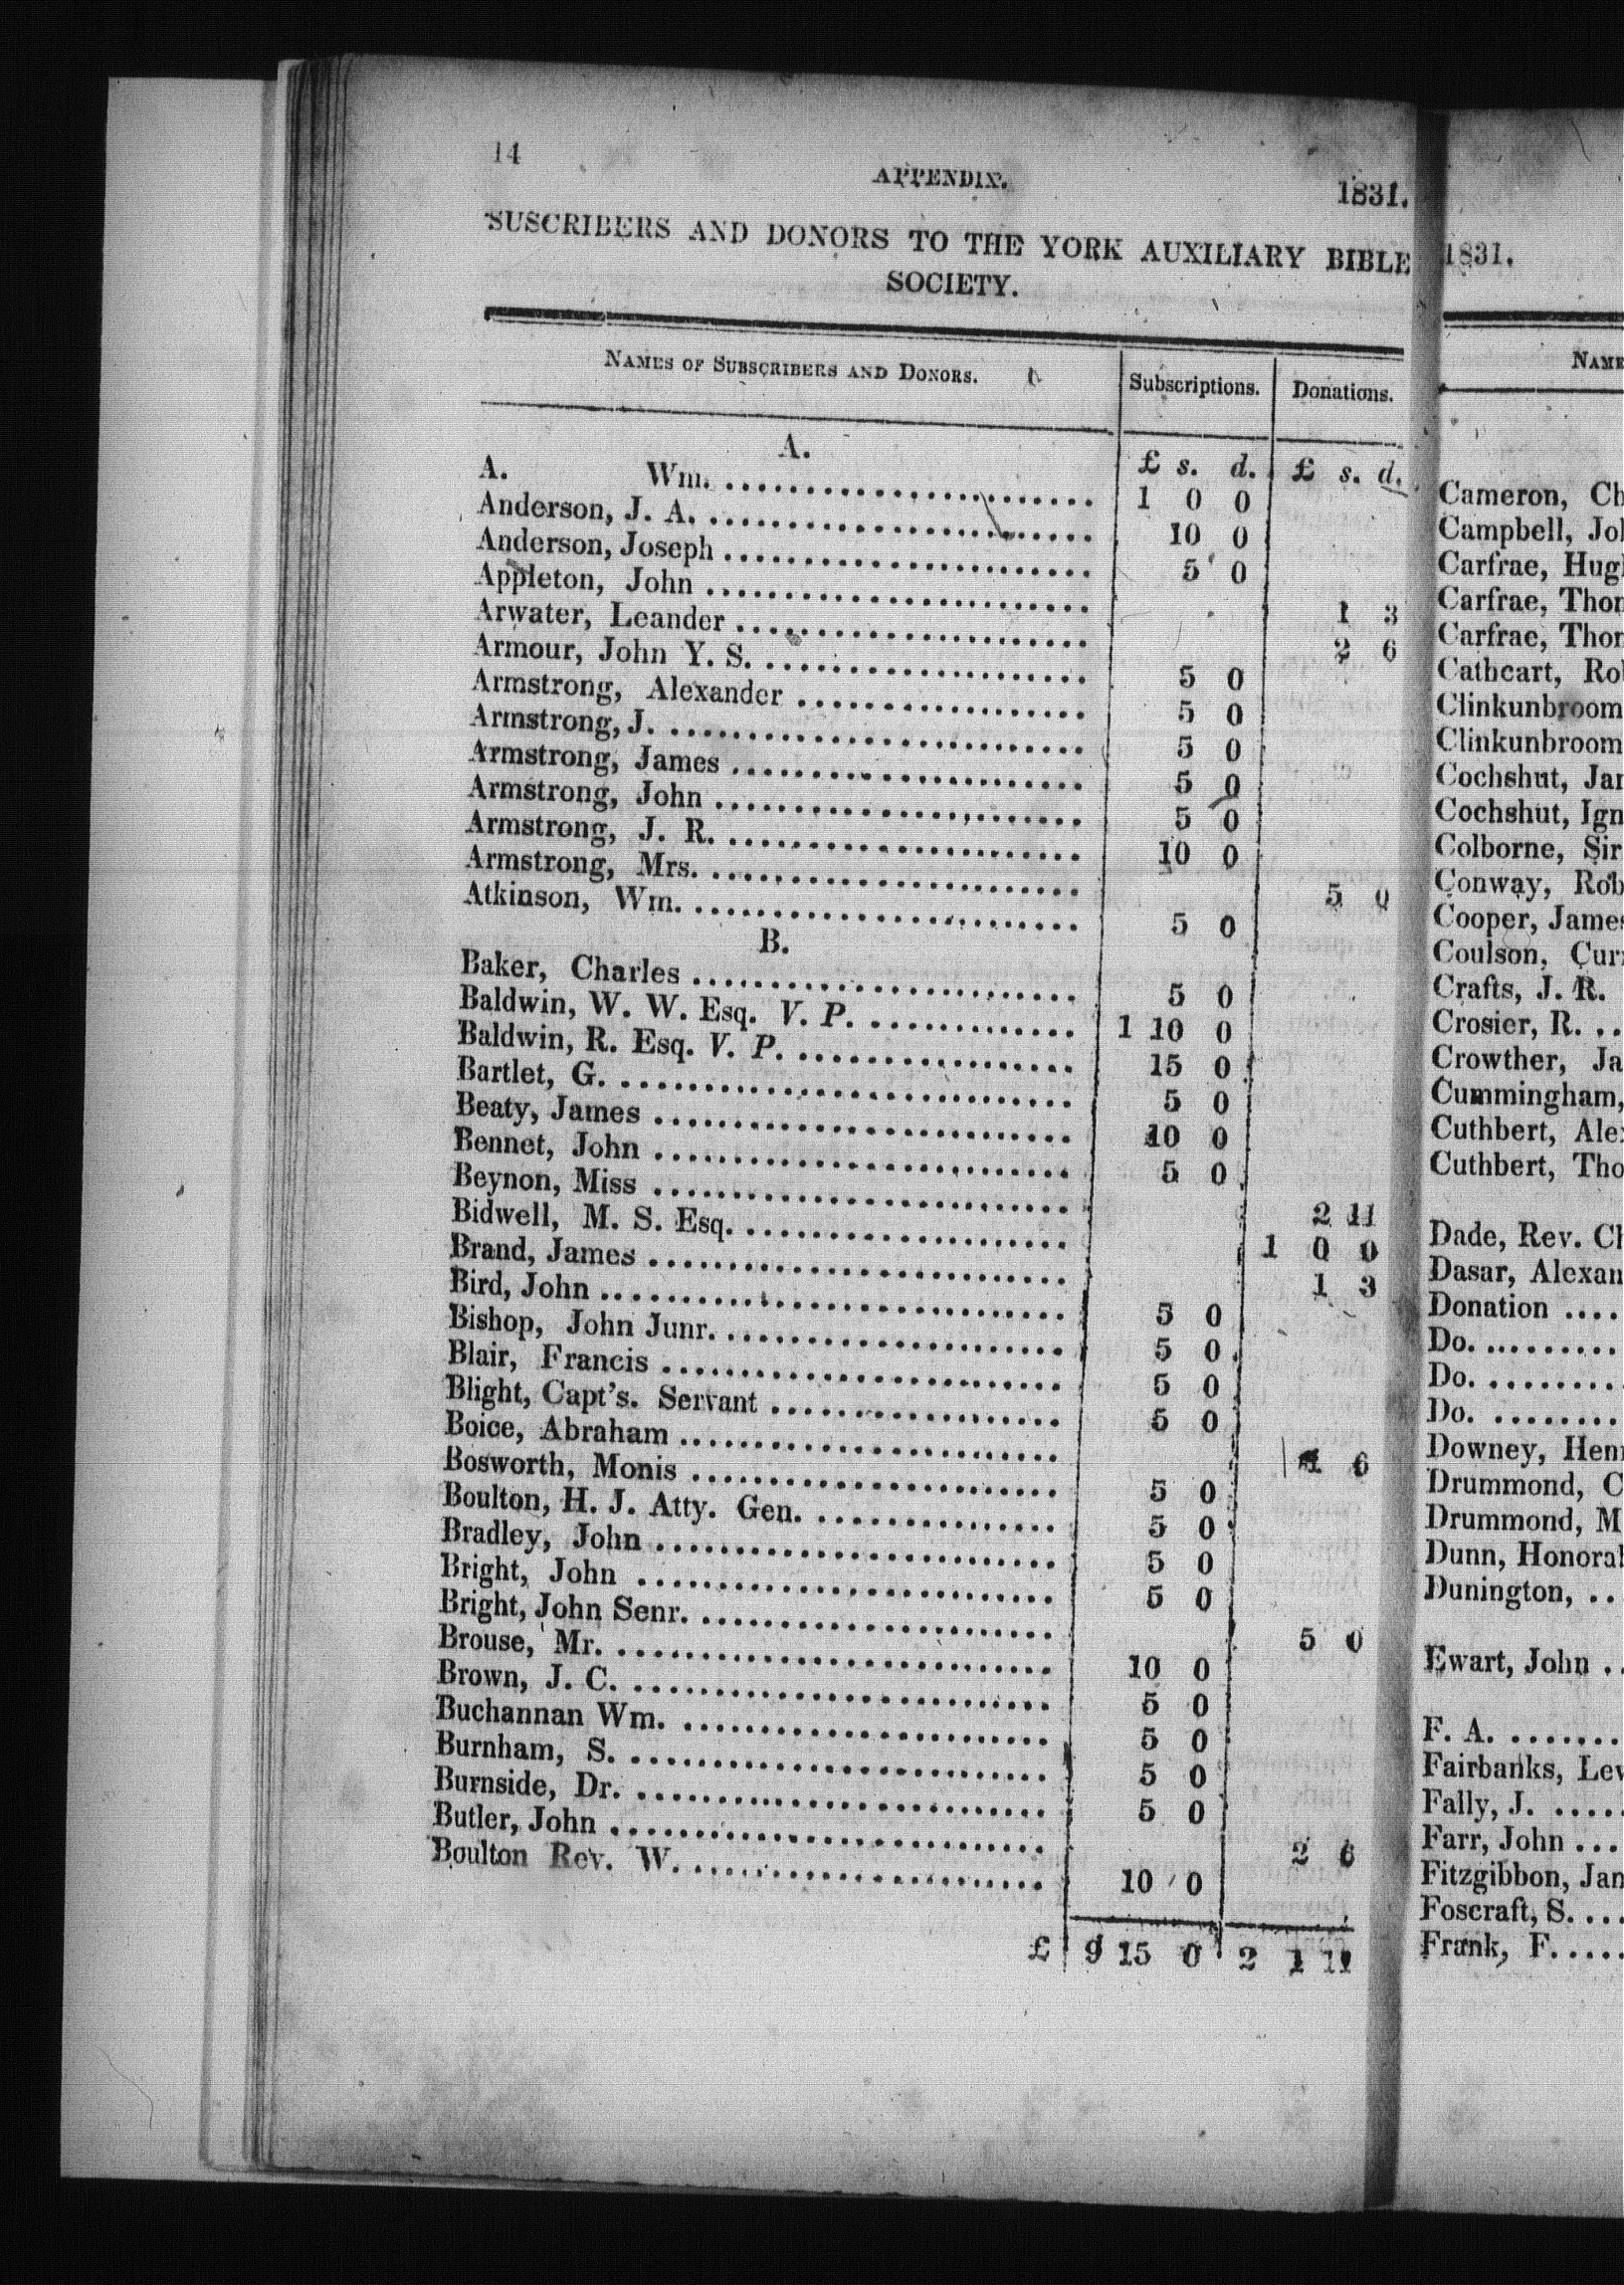 14
APPENDIX.
1831.
SUSCRIBERS AND DONORS TO THE YORK AUXILIARY BIBLE
SOCIETY.
NAMES OF SUBSCRIBERS AND DONORS. Subscriptions. Donations.
A. £ s. d. £ s. d.
A. Wm. .......................... 1 0 0
Anderson, J. A. .......................... 10 0
Anderson, Joseph .......................... 5 0
Appleton, John .......................... 1 3
Arwater, Leander .......................... 2 6
Armour, John Y. S. .......................... 5 0
Armstrong, Alexander .......................... 5 0
Armstrong, J. .......................... 5 0
Armstrong, James .......................... 5 0
Armstrong, John .......................... 5 0
Armstrong, J. R. .......................... 10 0
Armstrong, Mrs. .......................... 5 0
Atkinson, Wm. .......................... 5 0
B.
Baker, Charles .......................... 5 0
Baldwin, W. W. Esq. V. P. .............. 1 10 0
Baldwin, R. Esq. V. P. .................. 15 0
Bartlet, G. .......................... 5 0
Beaty, James .......................... 10 0
Bennet, John .......................... 5 0
Beynon, Miss .......................... 2 11
Bidwell, M. S. Esq. .......................... 1 0 0
Brand, James .......................... 1 3
Bird, John .......................... 5 0
Bishop, John Junr. .......................... 5 0
Blair, Francis .......................... 5 0
Blight, Capt's. Servant .................. 5 0
Boice, Abraham .......................... 6
Bosworth, Monis .......................... 5 0
Boulton, H. J. Atty. Gen. ................ 5 0
Bradley, John .......................... 5 0
Bright, John .......................... 5 0
Bright, John Senr. .......................... 5 0
Brouse, Mr. .......................... 10 0
Brown, J. C. .......................... 5 0
Buchannan Wm. .......................... 5 0
Burnham, S. .......................... 5 0
Burnside, Dr. .......................... 5 0
Butler, John .......................... 2 6
Boulton Rev. W. .......................... 10 0
£ 9 15 0 2 1 11
1831.
NAME
Cameron, Ch
Campbell, Jo
Carfrae, Hug
Carfrae, Thon
Carfrae, Thon
Cathcart, Ro
Clinkunbroom
Clinkunbroom
Cochshut, Jar
Cochshut, Ign
Colborne, Sir
Conway, Rob
Cooper, James
Coulson, Cur
Crafts, J. R.
Crosier, R. ..
Crowther, Ja
Cummingham,
Cuthbert, Ale
Cuthbert, Tho
Dade, Rev. Ch
Dasar, Alexan
Donation ....
Do. .........
Do. .........
Do. ........
Downey, Hen
Drummond, C
Drummond, M
Dunn, Honora
Dunington, ..
Ewart, John ..
F. A. .......
Fairbanks, Lew
Fally, J. ....
Farr, John ...
Fitzgibbon, Jan
Foscraft, S. ...
Frank, F. ....